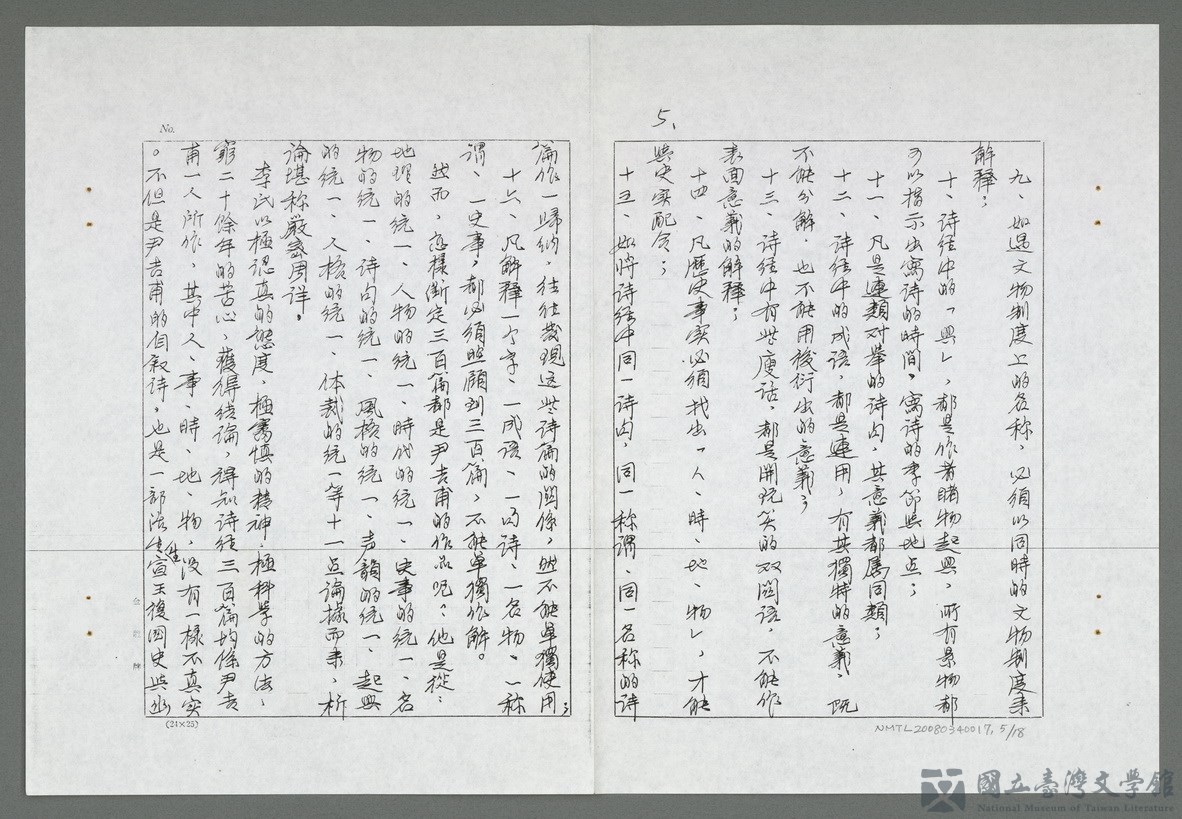 5、
九、如遇文物制度上的名称，必须以同時的文物制度来
解釋；
十、诗经中的「興」，都是作者睹物起興，所有景物都
可以指示出寫诗的時间，寫诗的季節與地点；
十一、凡是連類对舉的诗句，其意義都属同類；
十二、诗经中的成语，都是連用，有其獨特的意義，既
不能分解，也不能用後衍出的意義；
十三、诗经中有些廋话，都是開玩笑的双関语，不能作
表面意義的解釋；
十四、凡歷史事实必须找出「人、時、地、物」，才能
與史实配合；
十五、如將诗经中同一诗句，同一称谓、同一名称的诗
篇作一歸纳，往往發現这些诗篇的関係，然不能單獨使用；
十六、凡解釋一个字、一成语、一句诗、一名物、一称
谓、一史事，都必须照顧到三百篇，不能單獨作解。
然而，怎樣断定三百篇都是尹吉甫的作品呢？他是從：
地理的统一、人物的统一、時代的统一、史事的统一、名
物的统一、诗句的统一、風格的统一、声韻的统一、起興
的统一、人格的统一、体裁的统一等十一点論據而来，析
論堪称嚴密周详。
李氏以極認真的態度，極審慎的精神，極科学的方法，
窮二十餘年的苦心，獲得结論，得知诗经三百篇均係尹吉
甫一人所作，其中人、事、時、地、物，没有一樣不真实
。不但是尹吉甫的自叙诗，也是一部活生
宣王復国史與幽
No.
(24×25)
NMTL20080340017, 5/18
國立臺灣文學館
National Museum of Taiwan Literature